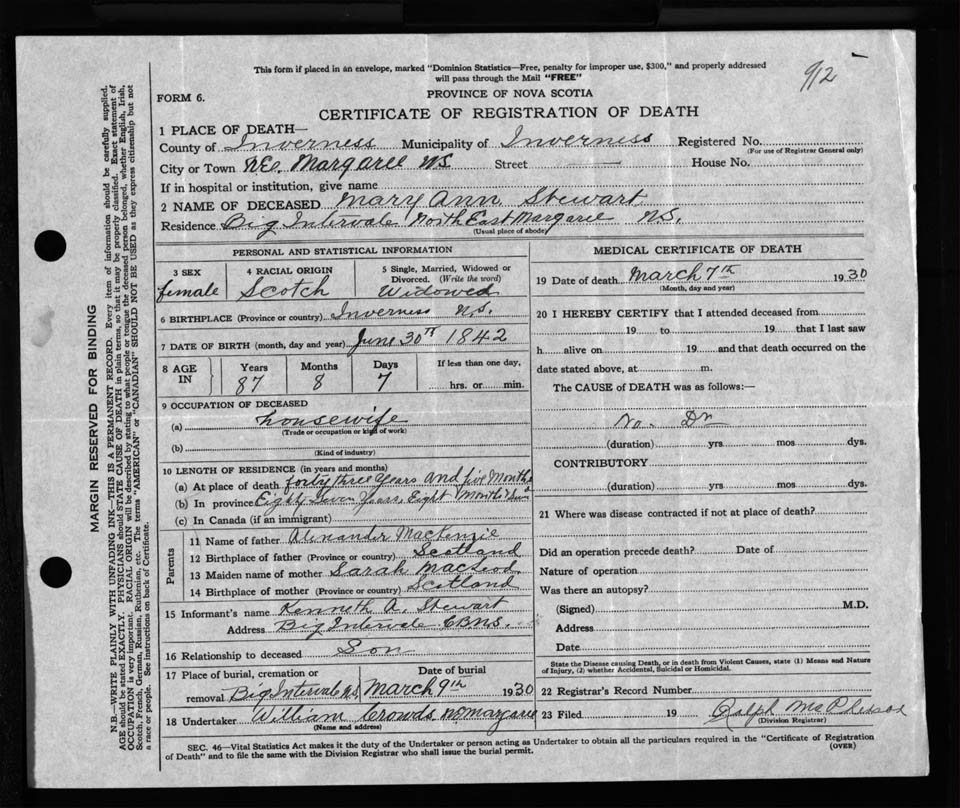 912
This form if placed in an envelope, marked "Dominion Statistics—Free, penalty for improper use, $300," and properly addressed
will pass through the Mail "FREE"
FORM 6.
PROVINCE OF NOVA SCOTIA
CERTIFICATE OF REGISTRATION OF DEATH
1 PLACE OF DEATH—
County of Inverness Municipality of Inverness Registered No.
(For use of Registrar General only)
City or Town N.E. Margaree N.S. Street — House No.
If in hospital or institution, give name
2 NAME OF DECEASED Mary Ann Stewart
Residence Big Intervale North East Margaree N.S.
(Usual place of abode)
PERSONAL AND STATISTICAL INFORMATION
3 SEX 4 RACIAL ORIGIN 5 Single, Married, Widowed or
Divorced. (Write the word)
female Scotch Widowed
6 BIRTHPLACE (Province or country) Inverness N.S.
7 DATE OF BIRTH (month, day and year) June 30th 1842
8 AGE IN Years Months Days If less than one day,
87 8 7 hrs. or min.
9 OCCUPATION OF DECEASED
(a) housewife
(Trade or occupation or kind of work)
(b)
(Kind of industry)
10 LENGTH OF RESIDENCE (in years and months)
(a) At place of death forty three years and five Months
(b) In province Eighty Seven Years, Eight Months
(c) In Canada (if an immigrant)
Parents
11 Name of father Alexander MacKenzie
12 Birthplace of father (Province or country) Scotland
13 Maiden name of mother Sarah MacLeod
14 Birthplace of mother (Province or country) Scotland
15 Informant's name Kenneth A. Stewart
Address Big Intervale C.B. N.S.
16 Relationship to deceased Son
17 Place of burial, cremation or Date of burial
removal Big Intervale N.S. March 9th 1930
18 Undertaker William Crowdis Margaree
(Name and address)
MEDICAL CERTIFICATE OF DEATH
19 Date of death March 7th 1930
(Month, day and year)
20 I HEREBY CERTIFY that I attended deceased from
19 to 19 that I last saw
h alive on 19 and that death occurred on the
date stated above, at m.
The CAUSE of DEATH was as follows:—
No. Dr
(duration) yrs mos dys.
CONTRIBUTORY
(duration) yrs. mos dys.
21 Where was disease contracted if not at place of death?
Did an operation precede death? Date of
Nature of operation
Was there an autopsy?
(Signed) M.D.
Address
Date
State the Disease causing Death, or in death from Violent Causes, state (1) Means and Nature
of Injury, (2) whether Accidental, Suicidal or Homicidal.
22 Registrar's Record Number
23 Filed 19 Ralph McPherson
(Division Registrar)
SEC. 46—Vital Statistics Act makes it the duty of the Undertaker or person acting as Undertaker to obtain all the particulars required in the "Certificate of Registration
of Death" and to file the same with the Division Registrar who shall issue the burial permit. (OVER)
MARGIN RESERVED FOR BINDING
N.B.—WRITE PLAINLY WITH UNFADING INK—THIS IS A PERMANENT RECORD. Every item of information should be carefully supplied.
AGE should be stated EXACTLY. PHYSICIANS should STATE CAUSE OF DEATH in plain terms, so that it may be properly classified. Exact statement of
OCCUPATION is very important. RACIAL ORIGIN will be described by stating to what people or tongue the deceased person belonged, whether English, Irish,
Scotch, French, German, Russian, Ruthenian, etc. The terms "AMERICAN" or "CANADIAN" SHOULD NOT BE USED as they express citizenship but not
a race or people. See instructions on back of Certificate.